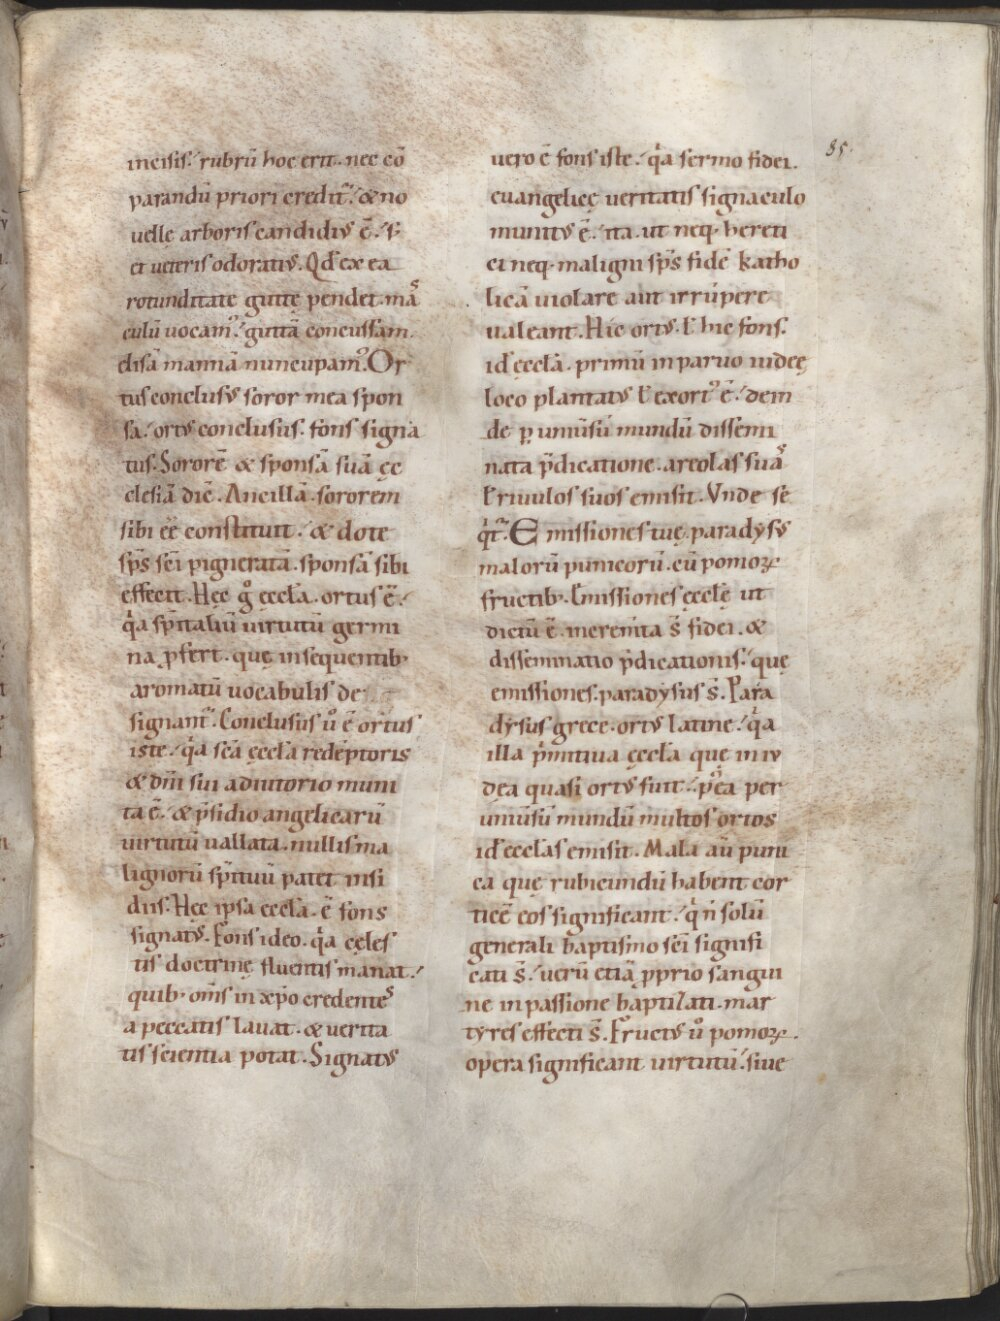 incisis. rubrū hoc erit. nec cō
parandū priori credit᷑. & no
uellę arboris candidiꝰ ē. s;
et ueteris odoratiꝰ. Qd̄ ex ea
rotunditate guttę pendet. mas
culū uocamꝰ. guttā concussam.
elisā mannā nuncupamꝰ. Or
tus conclusꝰ soror mea spon
sa. ortꝰ conclusus. fons signa
tus. Sororē & sponsā suā ęc
clesiā dic̄. Ancillā. sororem
sibi eē constituit. & dote
sp̄s sc̄i pigneratā. sponsā sibi
effecit. Hęc g̊ ęccła. ortus ē.
q̇a sp̄italiū uirtutū germi
na ꝓfert. quę in sequentib;
aromatū uocabulis de
signant᷑. Conclusus ů ē ortus
iste. q̇a sc̄a ęccła redēptoris
& dn̄i sui adiutorio muni
ta ē. & p̄sidio angelicarū
uirtutū uallata. nullis ma
lignorū sp̄ituū patet insi
diis. Hęc ipsa ęccła. ē fons
signatꝰ. Fons ideo. q̇a cęles
tis doctrinę fluentis manat.
quib; om̄s in xp̄o credentes
a peccatis lauat. & uerita
tis scientia potat. Signatꝰ
85.
uero ē fons iste. q̇a sermo fidei.
euangelicę ueritatis signaculo
munitꝰ ē. ita. ut neq; hereti
ci neq; maligni sp̄s fidē katho
licā uiolare aut irrūpere
ualeant. Hic ortꝰ. ł hic fons.
id̄ ęccła. primū in paruo iudęę
loco plantatꝰ ł exortꝰ ē. dein
de ꝑ uniūsū mundū dissemi
nata p̄dicatione. areolas suas
ł riuulos suos emisit. Vnde se
q̇t᷑. Emissiones tuę. paradysꝰ
malorū punicorū. cū pomoꝝ
fructib;. Emissiones ęccłę ut
dictū ē. increm̄ta s̄ fidei. &
disseminatio p̄dicationis. quę
emissiones. paradysus s̄. Para
dysus grece. ortꝰ latine. q̇a
illa ṗmitiua ęccła quę in iu
dęa quasi ortꝰ fuit. p̊ea per
uniūsū mundū multos ortos
id̄ ęccłas emisit. Mala aū puni
ca quę rubicundū habent cor
ticē eos significant. q̇ n̄ solū
generali baptismo sc̄i signifi
cati s̄. uerū etiā ꝓprio sangui
ne in passione baptizati. mar
tyres effecti s̄. Fructꝰ ů pomoꝝ.
opera significant uirtutū. siue